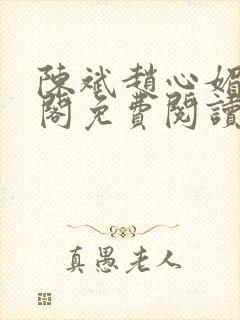 陳斌趙心媚
閣免費閱讀
真愚老人